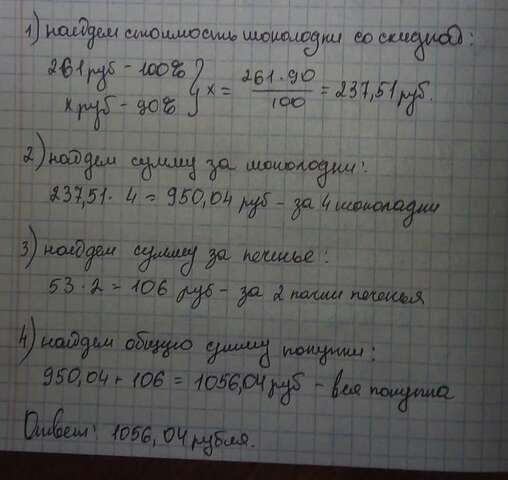 1) найдем стоимость шоколадки со скидкой:
261 руб - 100%
x руб - 90%
x = 261·90 / 100 = 237,51 руб.
2) найдем сумму за шоколадки:
237,51 · 4 = 950,04 руб - за 4 шоколадки
3) найдем сумму за печенье:
53 · 2 = 106 руб - за 2 пачки печенья
4) найдем общую сумму покупки:
950,04 + 106 = 1056,04 руб - вся покупка
Ответ: 1056,04 рубля.